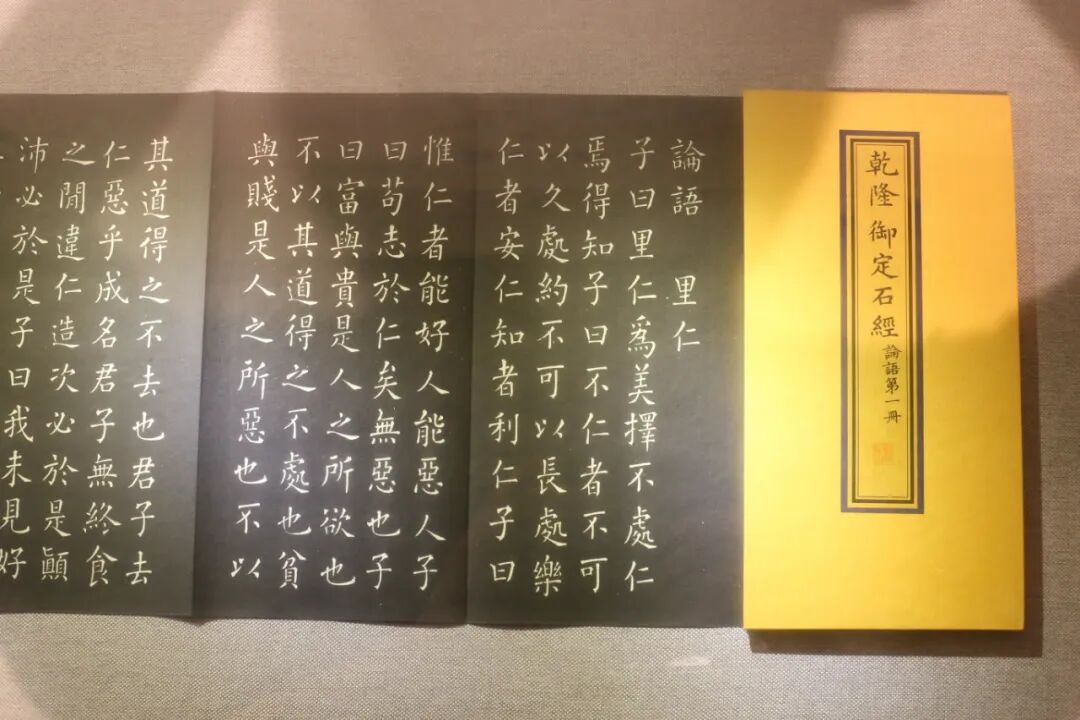 乾隆御定石經論語第一冊
論語 里仁
子曰里仁爲美擇不處仁
焉得知子曰不仁者不可
以久處約不可以長處樂
仁者安仁知者利仁子曰
惟仁者能好人能惡人子
曰苟志於仁矣無惡也子
曰富與貴是人之所欲也
不以其道得之不處也貧
與賤是人之所惡也不以
其道得之不去也君子去
仁惡乎成名君子無終食
之閒違仁造次必於是顛
沛必於是子曰我未見好